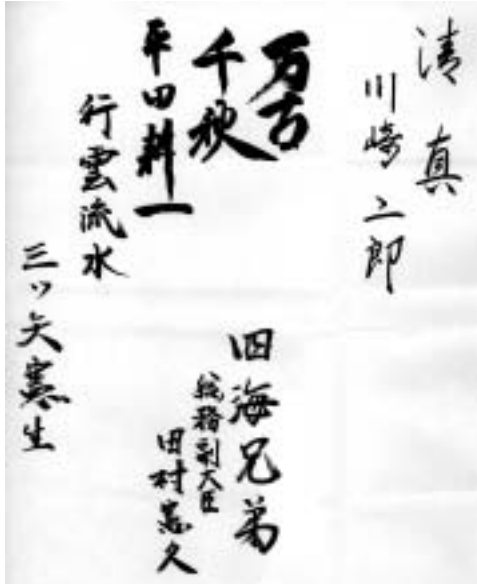 清真
川崎二郎
万古
千秋
平田耕一
行雲流水
三ッ矢憲生
四海兄弟
総務副大臣
田村憲久